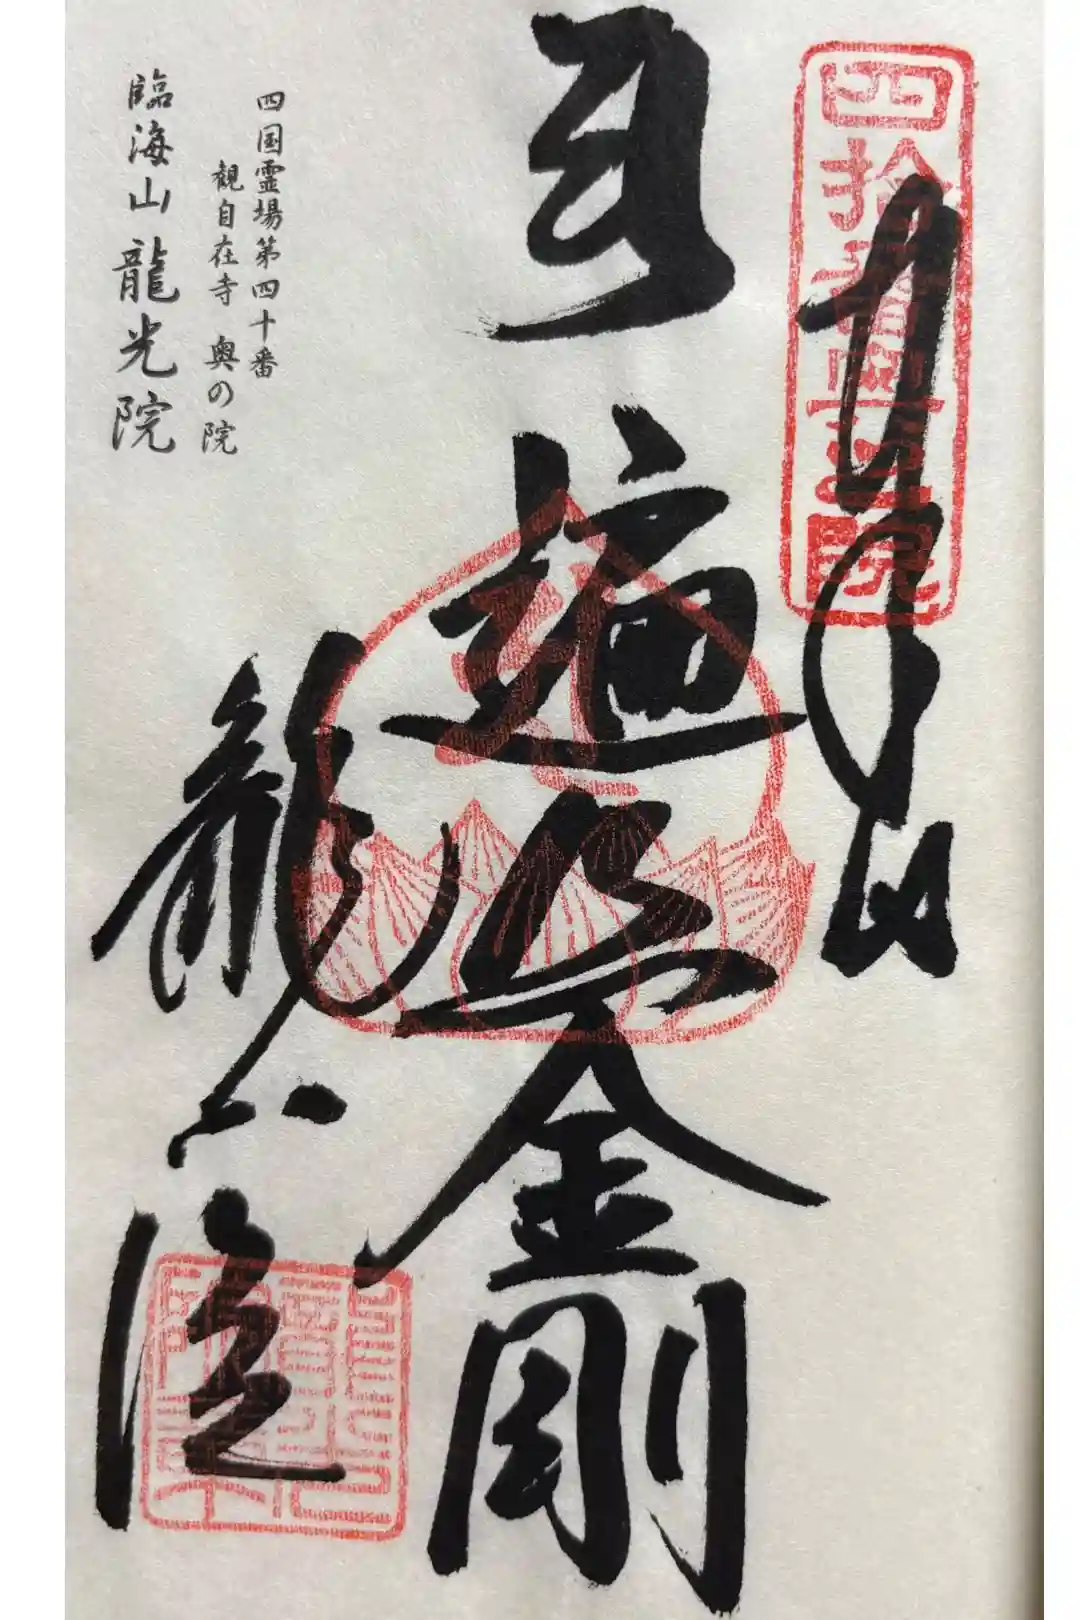 四拾番奥之院
臨海山
遍照金剛
四国霊場第四十番
観自在寺 奥の院
臨海山龍光院
龍光院